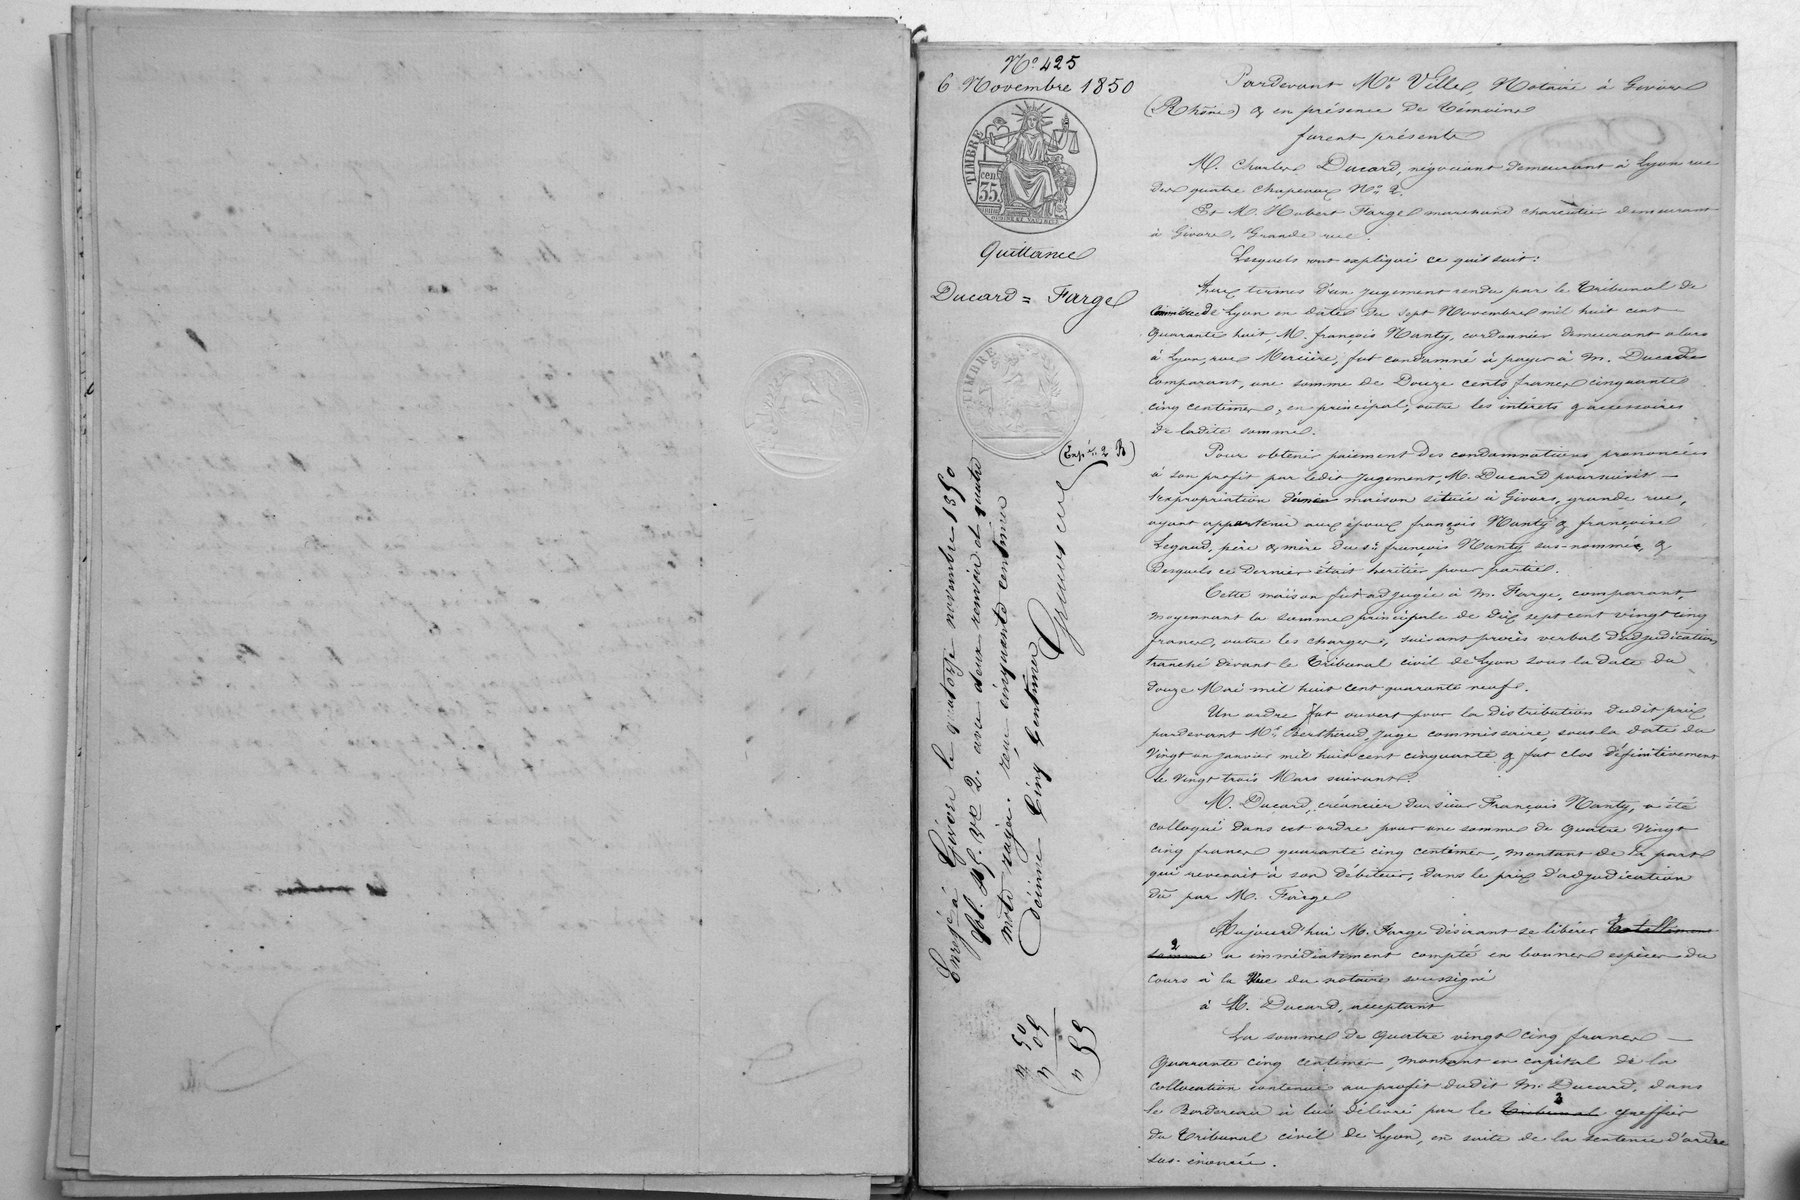 N° 425
6 Novembre 1850
TIMBRE
35 cent
Quittance
Ducard = Farge
TIMBRE
(Exp. 2 R)
Enregé à Givors le quatorze novembre 1850
fol. 45. vo 2. avec deux renvois et quatre
mots rayés. reçu cinquante centimes
Décime cinq centimes
" 50
" 05
" 55
Pardevant Me Ville, Notaire à Givors
(Rhône) & en présence de témoins
furent présents
M. Charles Ducard, négociant demeurant à Lyon rue
des quatre chapeaux No 2.
Et M. Hubert Farge marchand charcutier demeurant
à Givors, Grande rue.
Lesquels ont expliqué ce qui suit:
Aux termes d'un jugement rendu par le Tribunal de
Commerce de Lyon en date du sept Novembre mil huit cent
quarante huit, M. françois Nanty, cordonnier demeurant alors
à Lyon, rue Mercière, fut condamné à payer à M. Ducard
comparant, une somme de Douze cents francs cinquante
cinq centimes, en principal, outre les intérêts & accessoires
de ladite somme.
Pour obtenir paiement des condamnations prononcées
à son profit par ledit jugement, M. Ducard poursuivit
l'expropriation d'une maison située à Givors, grande rue,
ayant appartenu aux époux françois Nanty & françoise
Legaud, père & mère du sr françois Nanty sus-nommé, &
desquels ce dernier était héritier pour partie.
Cette maison fut adjugée à M. Farge, comparant,
moyennant la somme principale de dix sept cent vingt cinq
francs, outre les charges, suivant procès verbal d'adjudication
tranché devant le Tribunal civil de Lyon sous la date du
douze Mai mil huit cent quarante neuf.
Un ordre fut ouvert pour la distribution dudit prix
pardevant Mr Berthaud, juge commissaire, sous la date du
vingt un janvier mil huit cent cinquante & fut clos définitivement
le vingt trois Mars suivant.
M. Ducard, créancier du sieur François Nanty, a été
colloqué dans cet ordre pour une somme de quatre vingt
cinq francs quarante cinq centimes, montant de la part
qui revenait à son débiteur, dans le prix d'adjudication
dû par M. Farge
Aujourd'hui M. Farge désirant se libérer
a immédiatement compté en bonnes espèces du
cours à la vue du notaire soussigné
à M. Ducard, acceptant
La somme de quatre vingt cinq francs
quarante cinq centimes, montant en capital de la
collocation contenue au profit dudit M. Ducard, dans
le Bordereau à lui délivré par le Tribunal greffier
du Tribunal civil de Lyon, en suite de la sentence d'ordre
sus-énoncée.